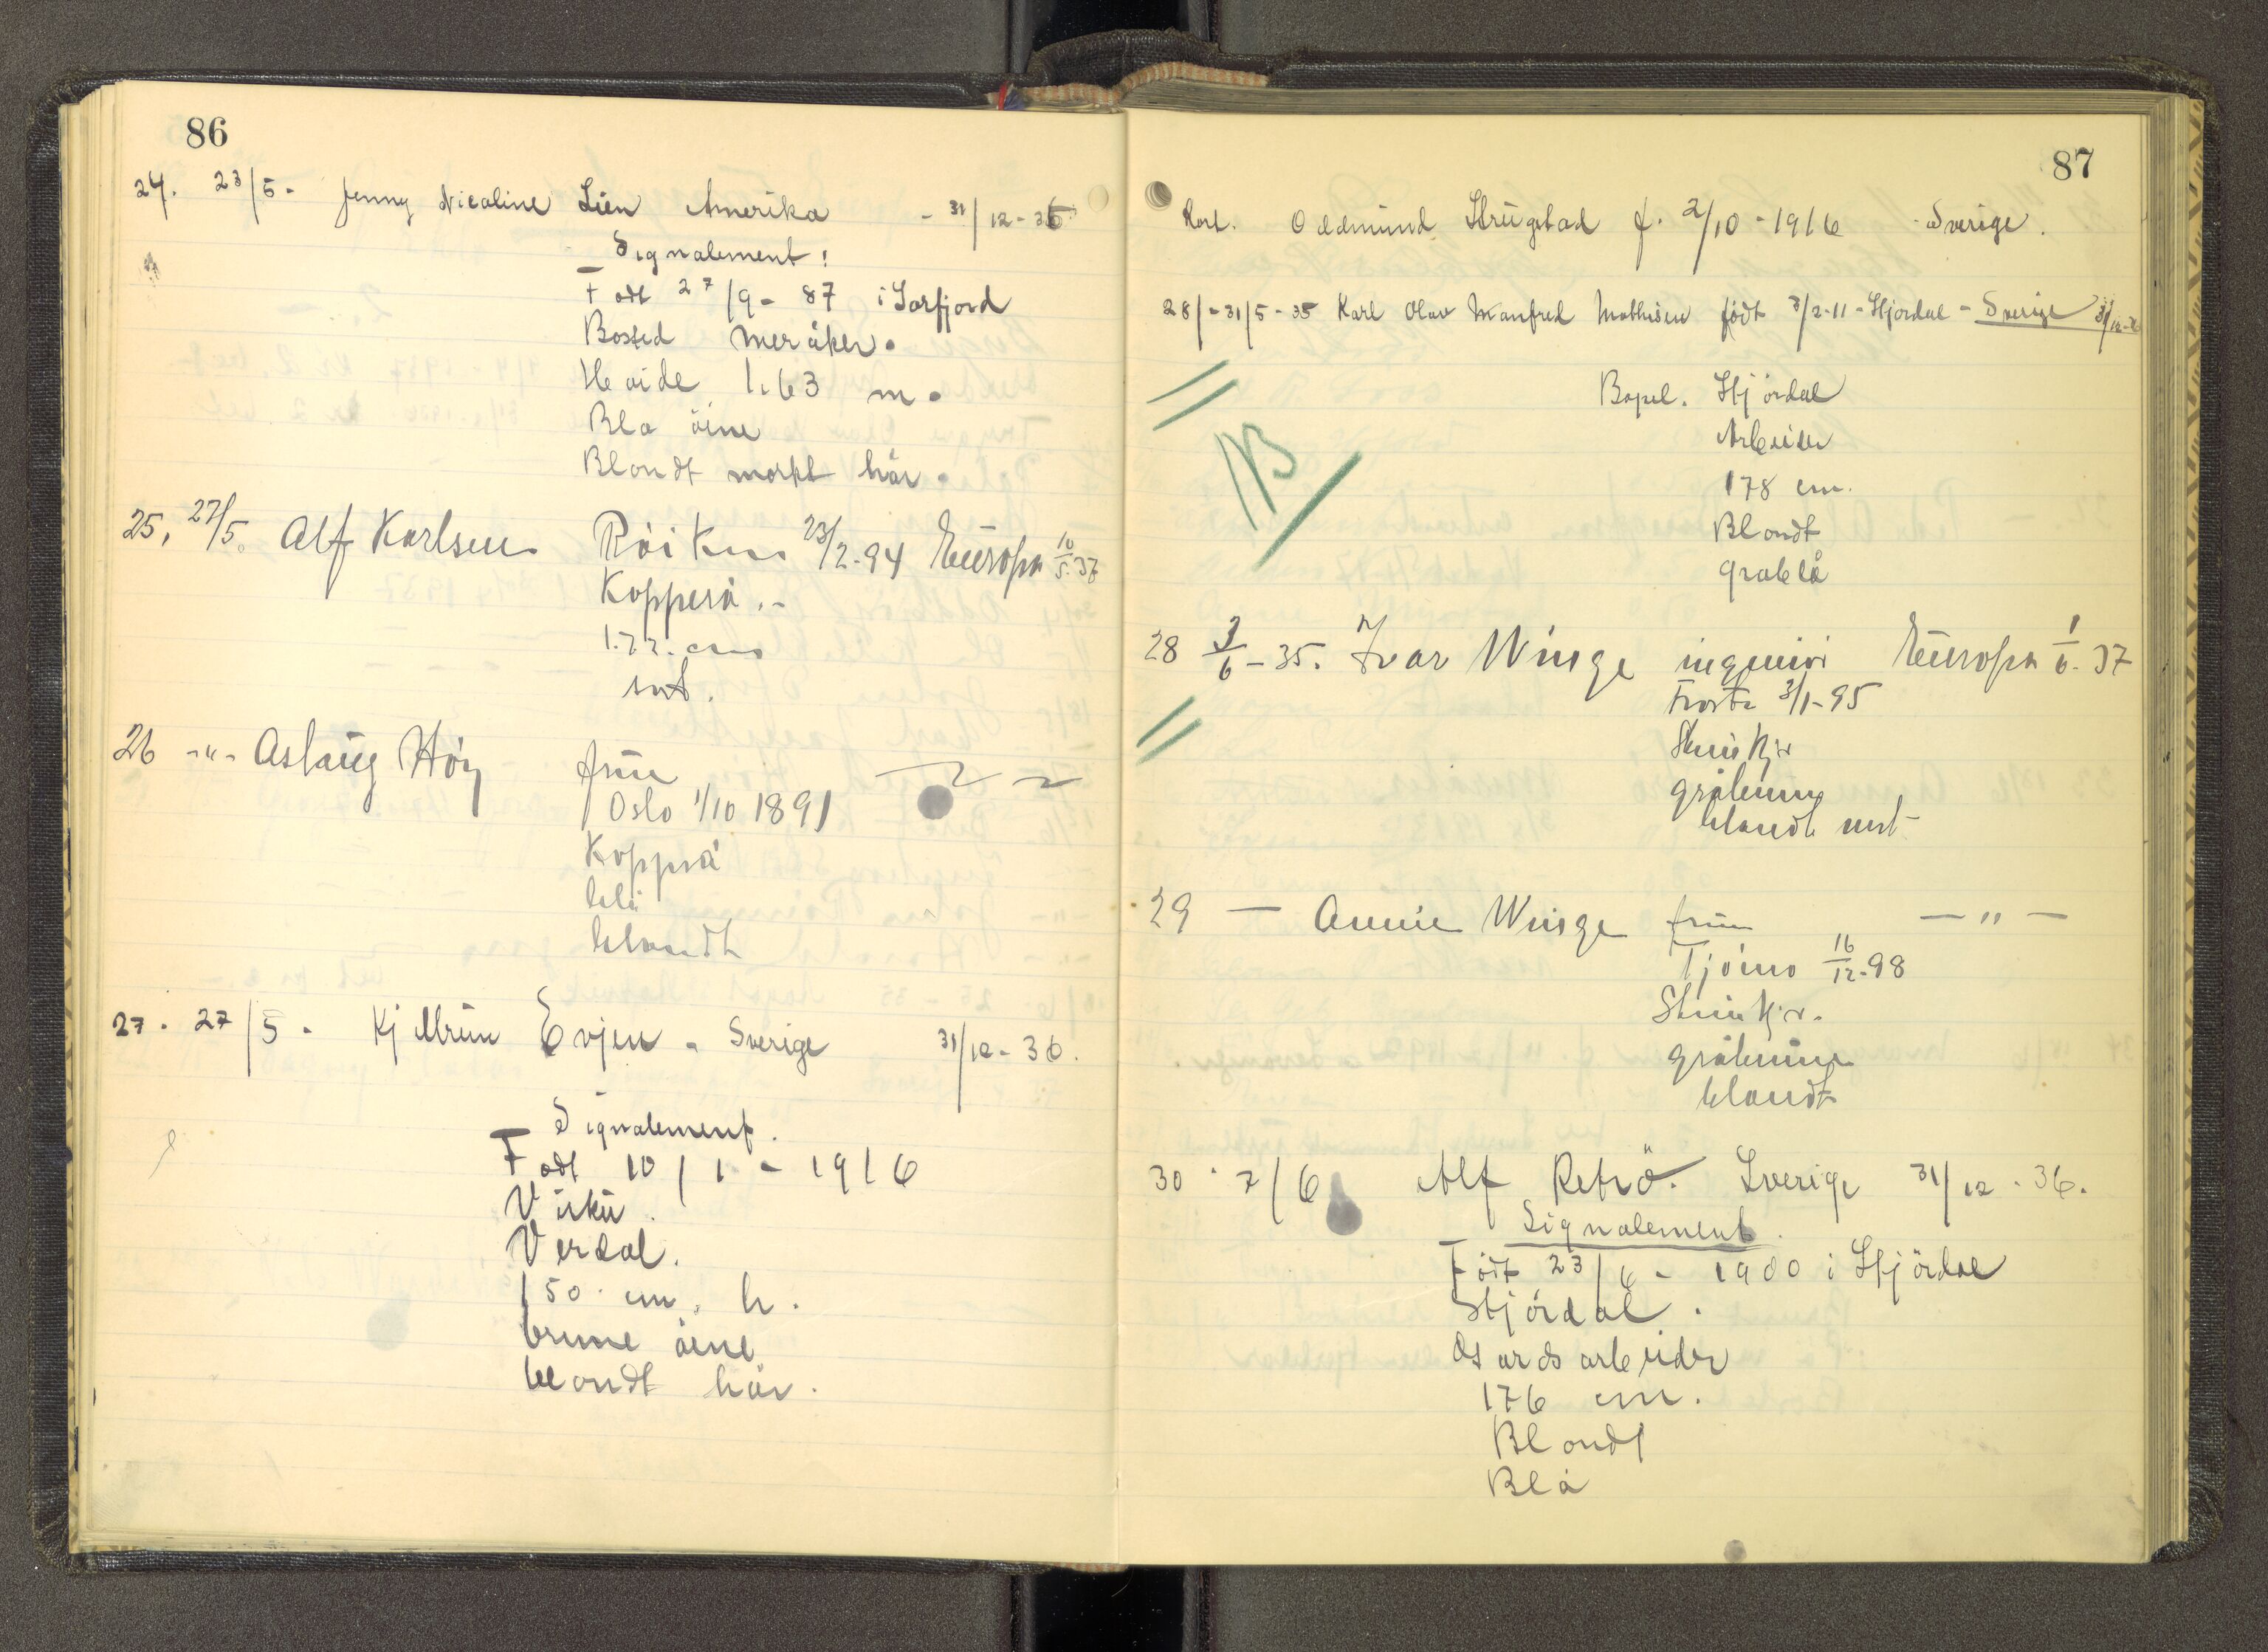 86
24. 23/5 - Jenny Nicoline Lien Amerika - 31/12-36
Signalement:
Født 27/9 - 87 i Sørfjord
Bosted Meråker.
Høide 1.63 m.
Blå öine
Blondt mørkt hår.
25, 27/5. Alf Karlsen Röiken 23/2-94 Europa 10/5-37
Kopperå.-
1.72. cm
26 -"- Aslaug Höy frue
Oslo 1/10 1891
Kopperå
blå
blondt
27. 27/5 - Kjellrun Evjen - Sverige 31/12-36.
Signalement.
Født 10/1 - 1916
Vuku.
Verdal.
150 cm. h.
brune öine
blondt hår.
87
Karl. Oddmund f. 2/10-1916 Sverige.
28/-31/5-35 Karl Olav Manfred Mathisen født 3/2-11-Stjördal - Sverige 31/12-36
Bopel. Stjördal
Arbeider
178 cm.
Blondt
gråblå
NB
28 3/6-35. Ivar Winge ingeniör Europa 1/6-37
Frosta 3/1-95
Steinkjer
gråbrune
blondt
29 — Annie Winge frue — " —
Tjömo 16/12-98
Steinkjer.
gråbrune
blondt
30. 7/6 Alf Retrö. Sverige 31/12-36.
Signalement.
Født 23/6 - 1900 i Stjördal
Stjördal.
Gårdsarbeider
176 cm.
Blondt
Blå